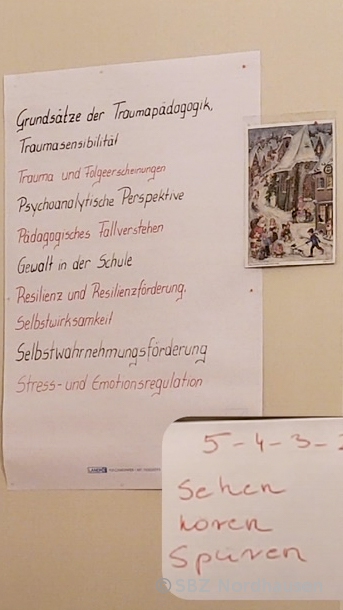 Grundsätze der Traumapädagogik,
Traumasensibilität
Trauma und Folgeerscheinungen
Psychoanalytische Perspektive
Pädagogisches Fallverstehen
Gewalt in der Schule
Resilienz und Resilienzförderung.
Selbstwirksamkeit
Selbstwahrnehmungsförderung
Stress- und Emotionsregulation
5-4-3-2
Sehen
hören
Spüren
© SBZ